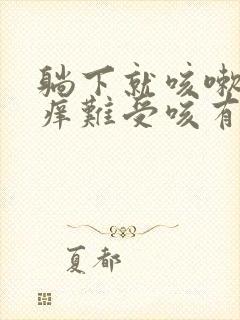 躺下就咳嗽
痒難受咳有
夏都